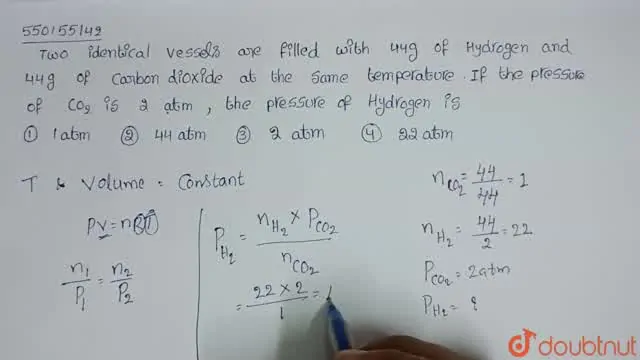 550155142
Two identical vessels are filled with 44g of Hydrogen and
44g of Carbon dioxide at the same temperature. If the pressure
of CO₂ is 2 atm, the pressure of Hydrogen is
① 1 atm ② 44 atm ③ 2 atm ④ 22 atm
T & Volume = Constant
PV = nRT
n₁/P₁ = n₂/P₂
P_H₂ = n_H₂ × P_CO₂ / n_CO₂
= 22 × 2 / 1 =
n_CO₂ = 44/44 = 1
n_H₂ = 44/2 = 22
P_CO₂ = 2atm
P_H₂ = ?
doubtnut